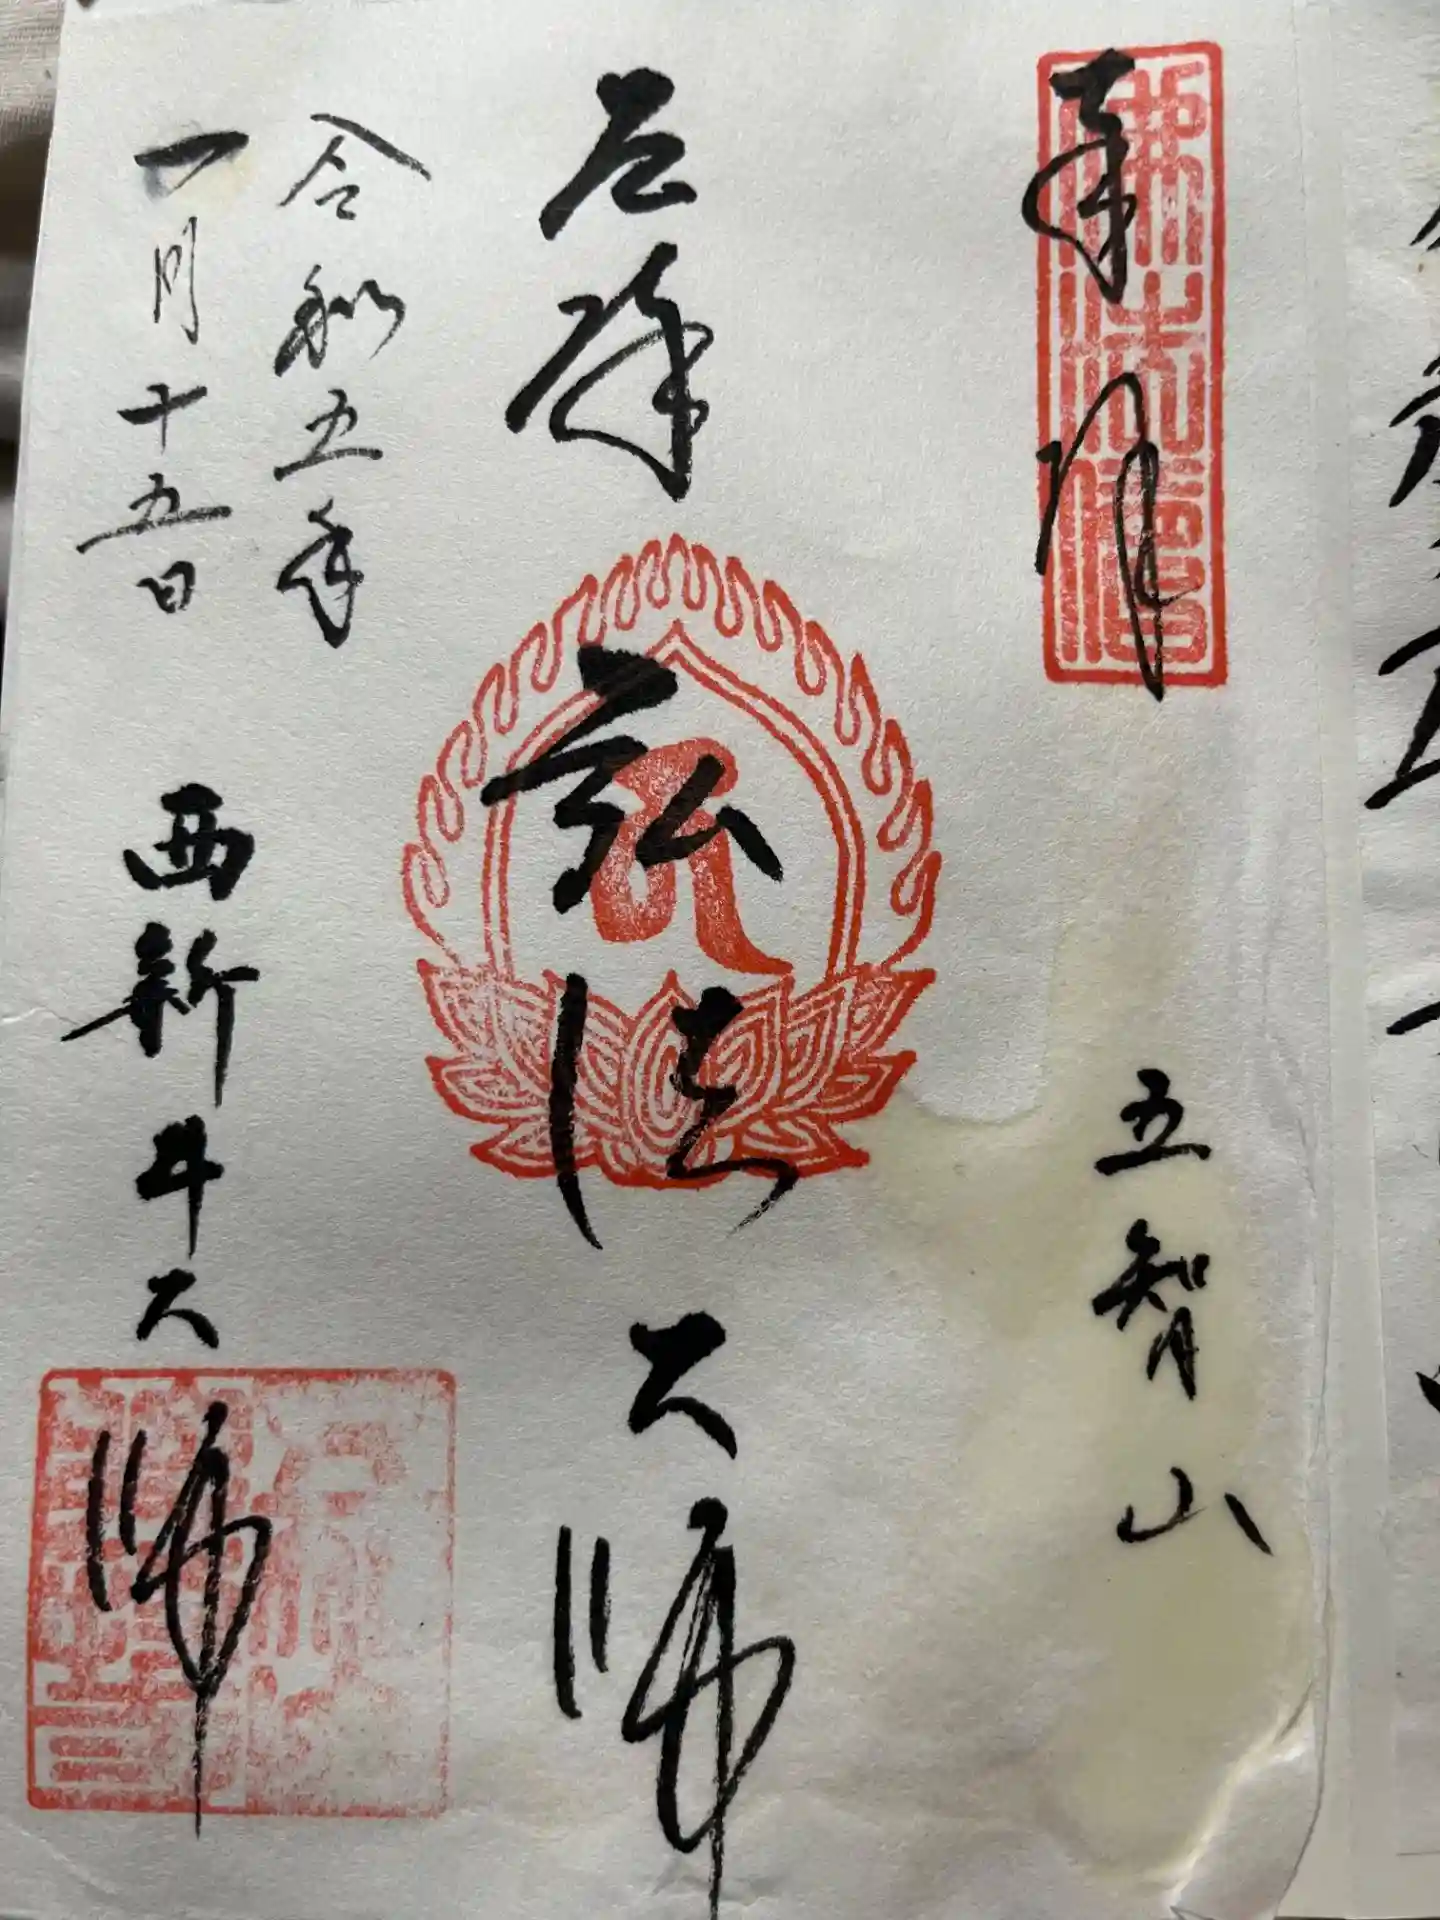 佛法僧
奉拝
五智山
厄除弘法大師
令和五年
一月十五日
西新井大師